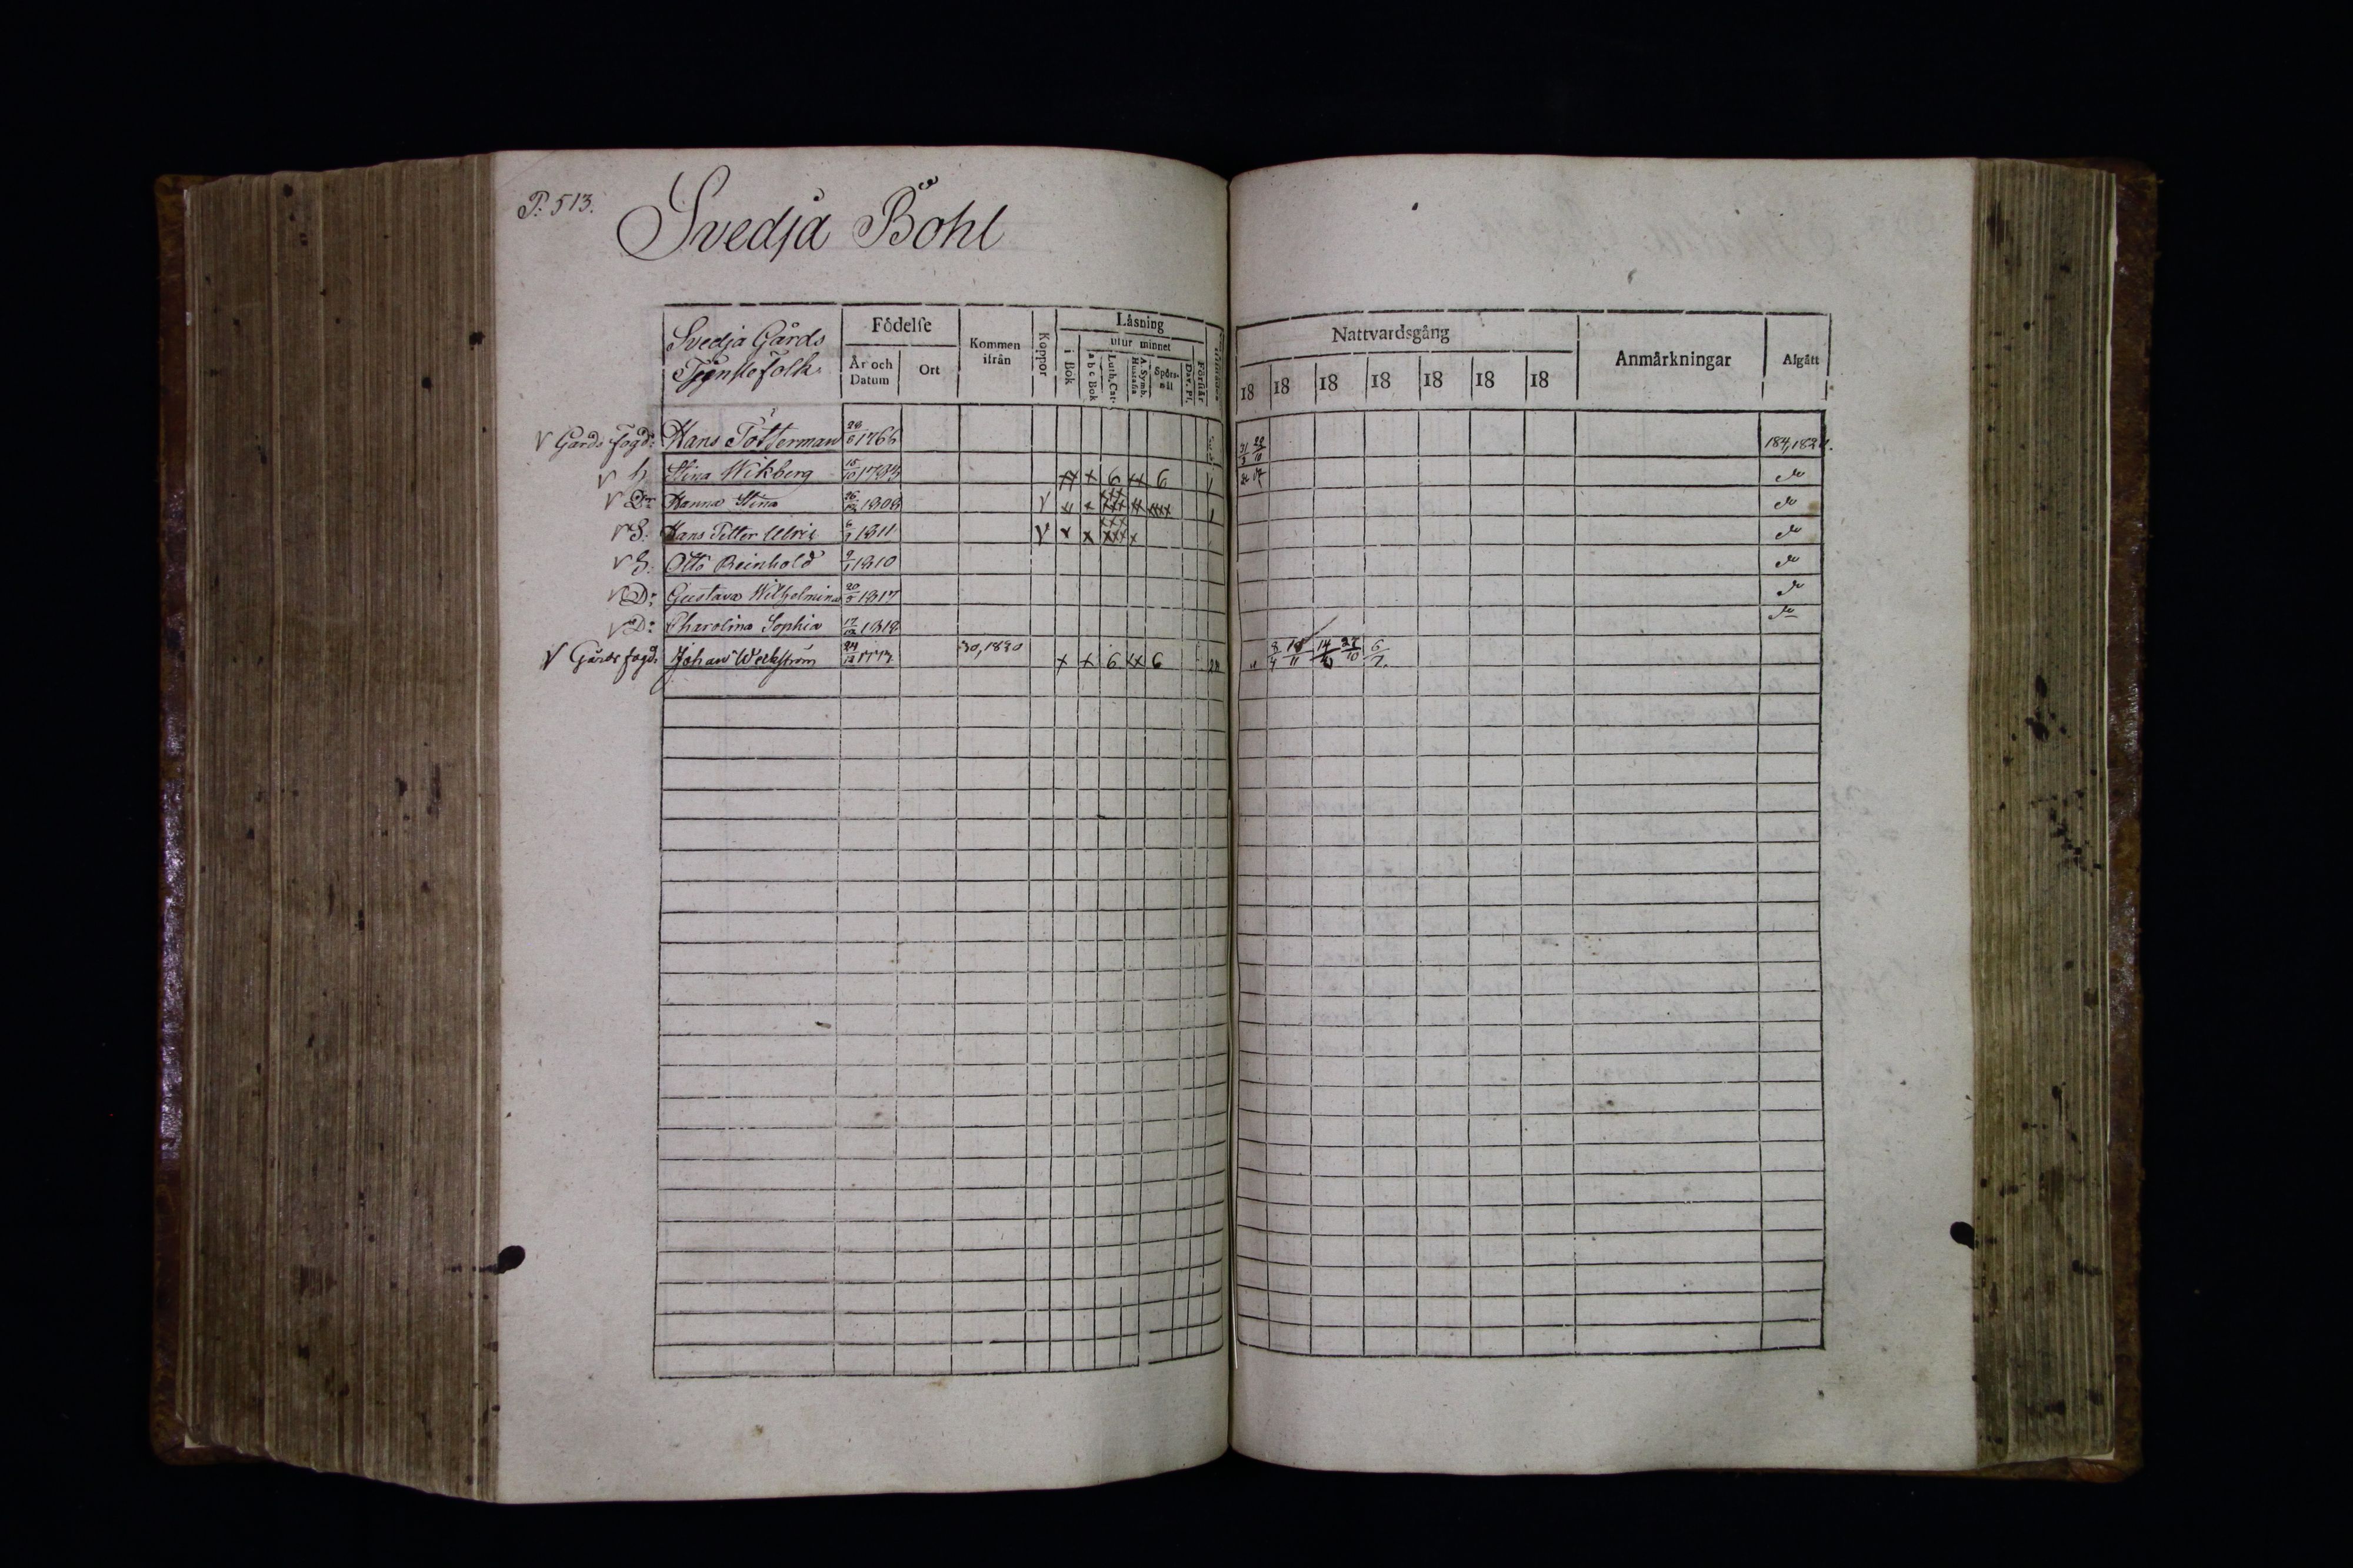 P. 513.
Svedja Bohl
Svedja Gårds
Tjenstefolk.
Födelse
År och Datum
Ort
Kommen ifrån
Koppor
Låsning
i Bok
utur minnet
a b c Bok
Luth. Cat.
A. Symb. Hustafla
Spörsmål
Dav. Ps.
Förstår
Nattvardsgång
18 18 18 18 18 18 18
Anmärkningar
Afgått
V Gårds fogd: Hans Totterman 28/6 1766 184, 182
V h Stina Wikberg 15/10 1783 xx x 6 xx 6 do
V Dr Hanna Stina 26/12 1808 V do
V S: Hans Petter Ulric 6/7 1811 V x x do
V S. Otto Reinhold 1810 do
V D: Gustava Wilhelmina 20/5 1817 do
V D: Charolina Sophia 17/12 1818 do
V Gårds fogd. Johan Weckström 24/12 1773 30, 1820 x x 6 xx 6 14/10 27/10 6/7